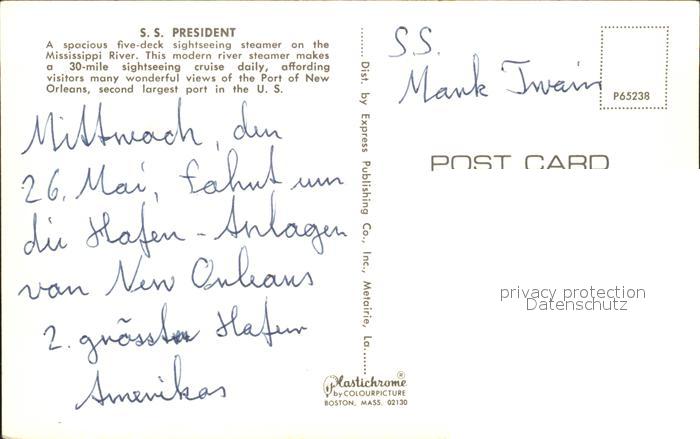 S. S. PRESIDENT
A spacious five-deck sightseeing steamer on the
Mississippi River. This modern river steamer makes
a 30-mile sightseeing cruise daily, affording
visitors many wonderful views of the Port of New
Orleans, second largest port in the U. S.
Mittwoch, den
26. Mai, Fahrt um
die Hafen-Anlagen
von New Orleans
2. grösster Hafen
Amerikas
Dist. by Express Publishing Co., Inc., Metairie, La.
Plastichrome®
by COLOURPICTURE
BOSTON, MASS. 02130
S.S.
Mark Twain
P65238
POST CARD
privacy protection
Datenschutz